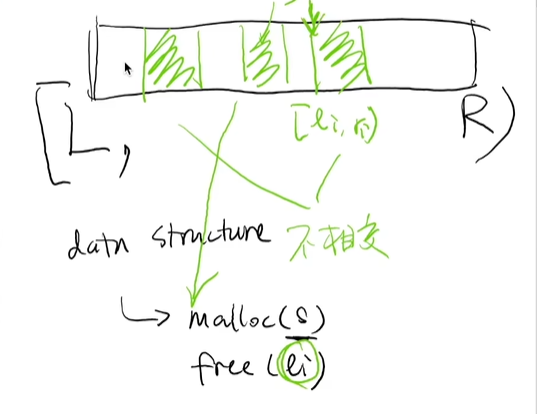 [li, ri)
[L, R)
data structure 不相交
malloc(s)
free(li)